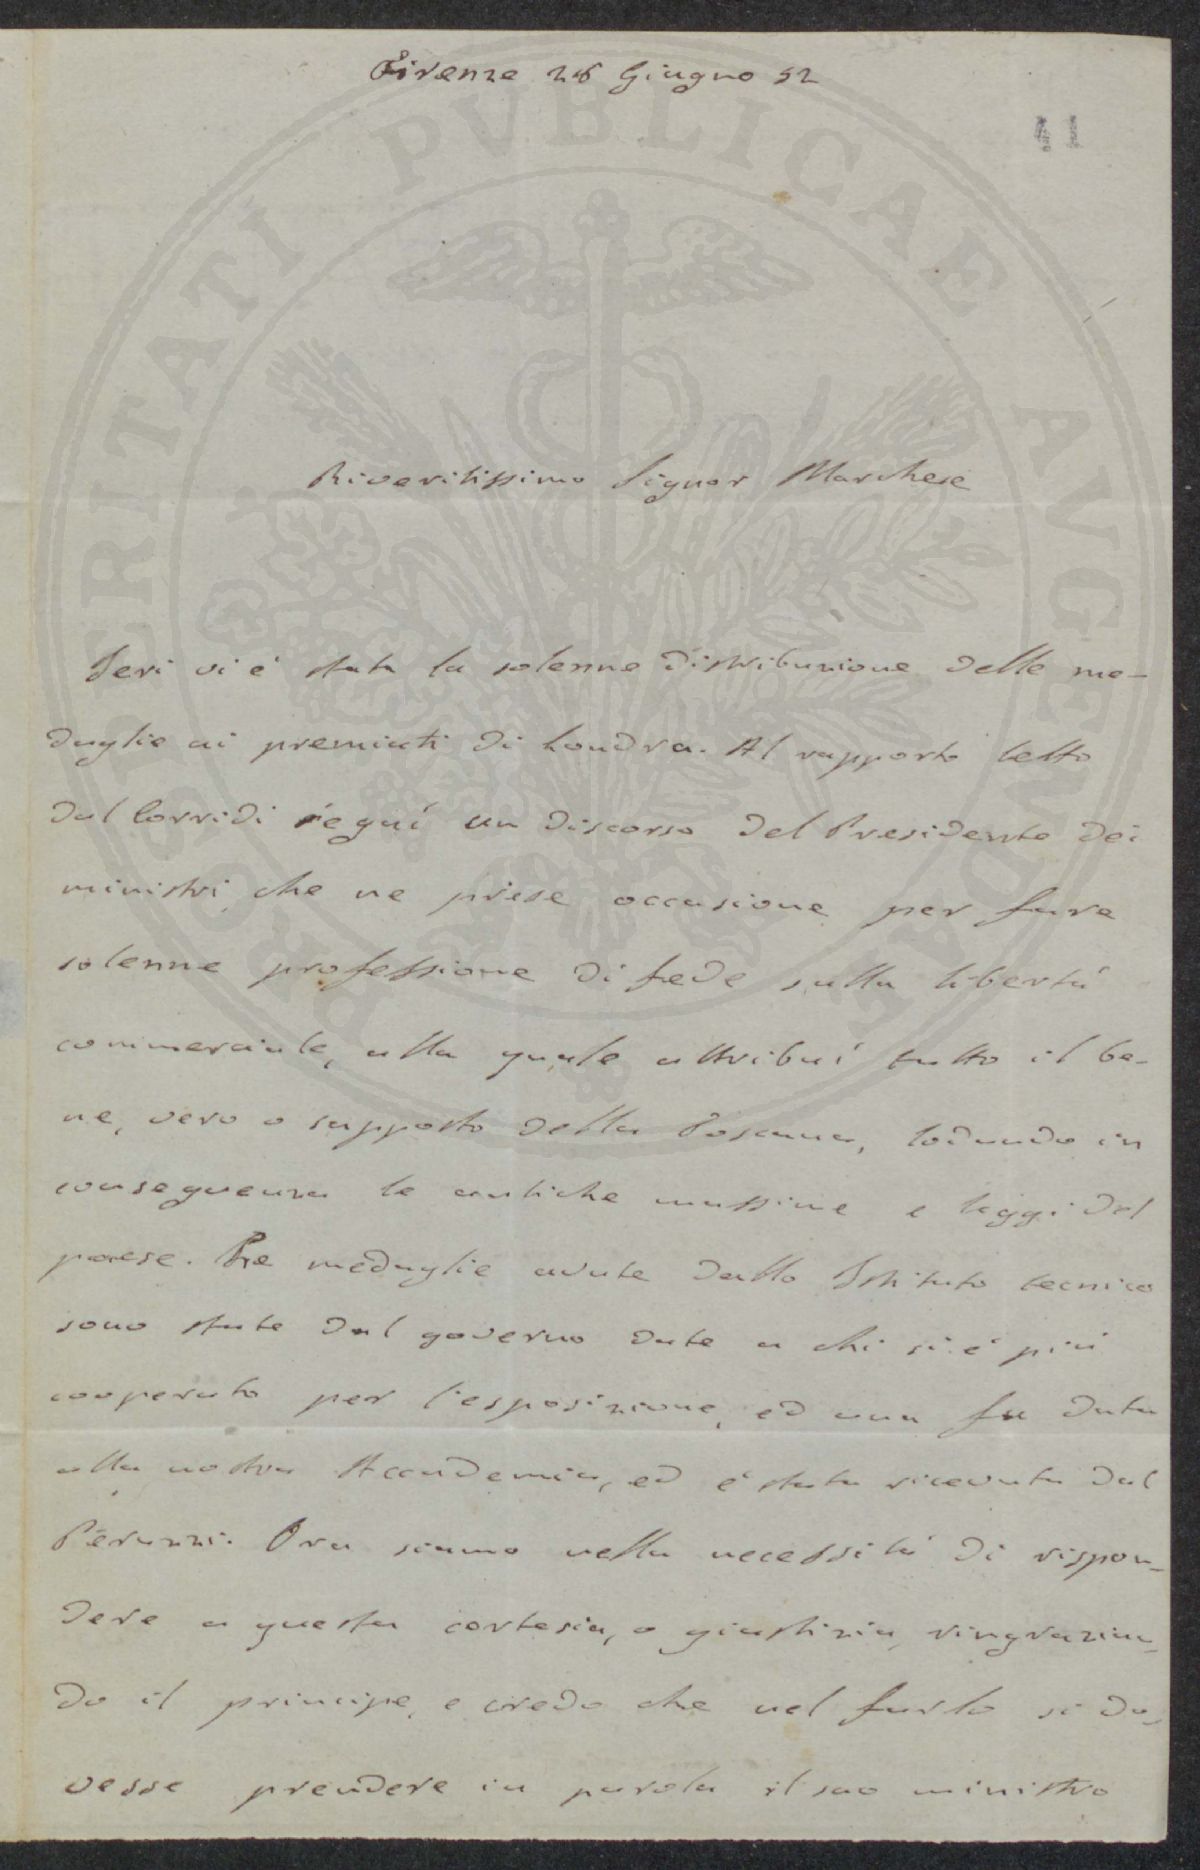 Firenze 28 Giugno 52
41
Riveritissimo Signor Marchese
Ieri vi é stata la solenne distribuzione delle me-
daglie ai premiati di Londra. Al rapporto letto
dal Corridi seguí un discorso del Presidente dei
ministri, che ne prese occasione per fare
solenne professione di fede sulla libertá
commerciale, alla quale attribuí tutto il be-
ne, vero o supposto della Toscana, lodando in
conseguenza le antiche massime e leggi del
paese. Tre medaglie avute dallo Istituto tecnico
sono state dal governo date a chi si é piú
cooperato per l'esposizione, ed una fu data
alla nostra Accademia, ed é stata ricevuta dal
Peruzzi. Ora siamo nella necessitá di rispon-
dere a questa cortesia, o giustizia, ringrazian-
do il principe, e credo che nel farlo si do-
vesse prendere in parola il suo ministro
PROSPERITATI PVBLICAE AVGENDAE